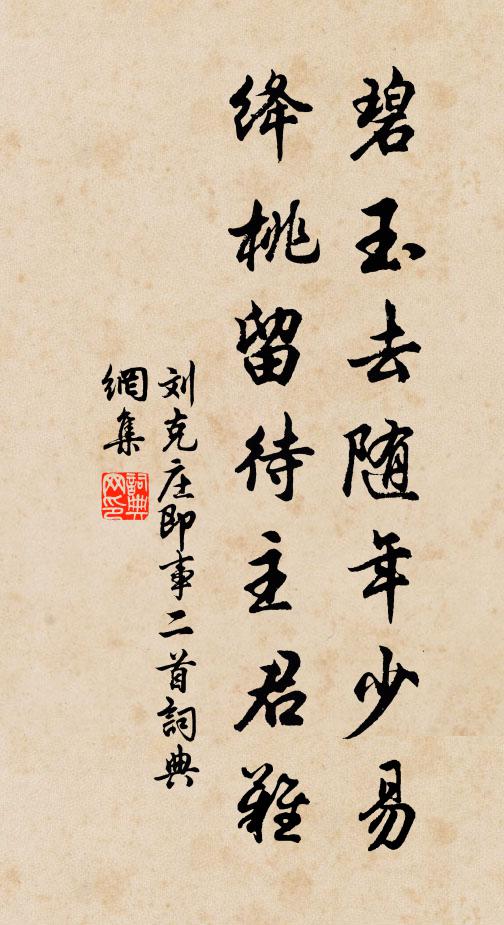 碧玉去随年少易
绛桃留待主君难
刘克庄即事二首詞典
網集
詞典
网印